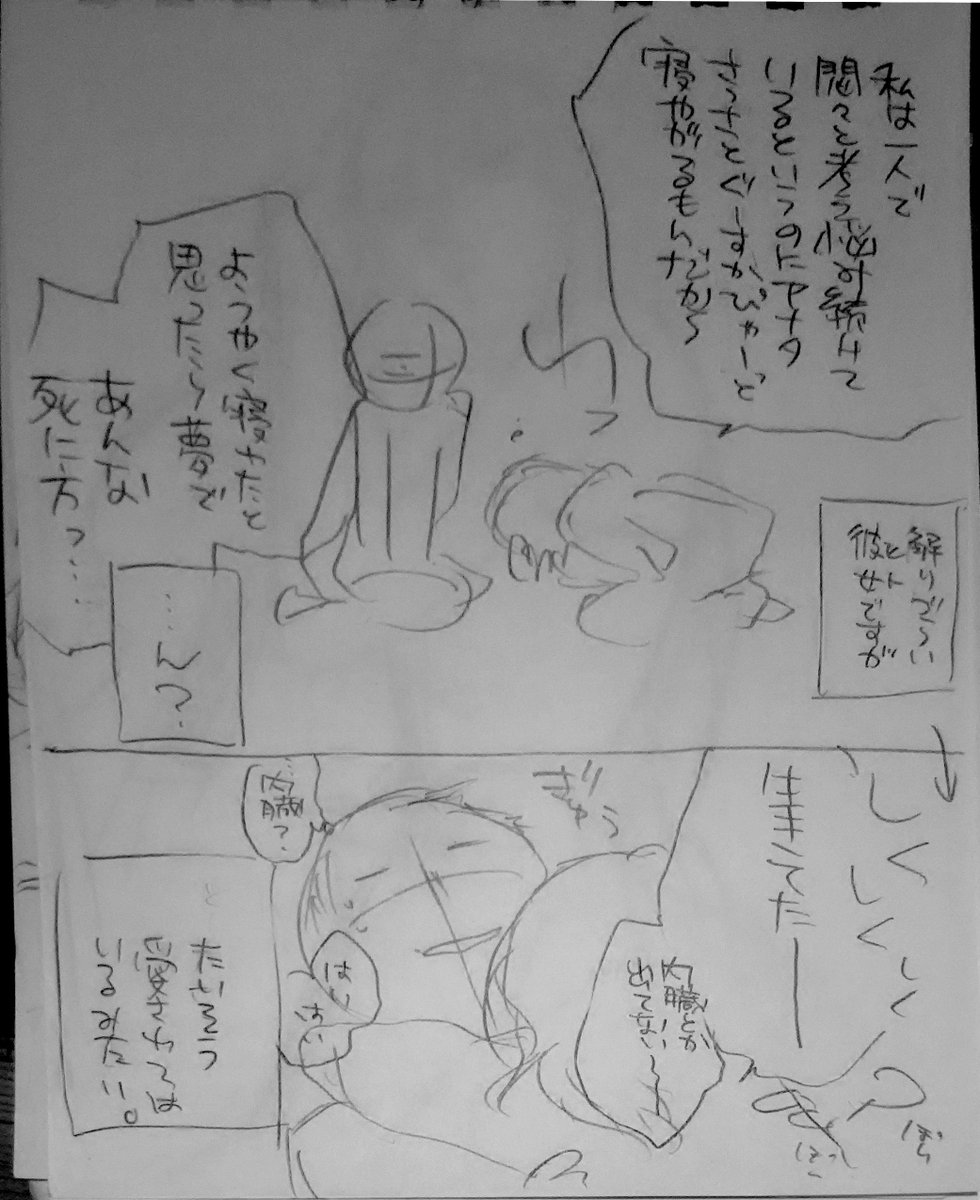 私は一人で
悶々と考え悩み続けて
いるというのにアナタ
さっさとぐーすかぴゃーと
寝やがるもんだから
解りづらい
彼女ですが
ようやく寝れたと
思ったら夢で
あんな
死に方っ……
……ん？
しくしくしくしく
生きてたー
内臓とか
出てないー
ぎゅう
…内臓？
はい
はい
…と
だきつつ
愛されては
いるみたい。